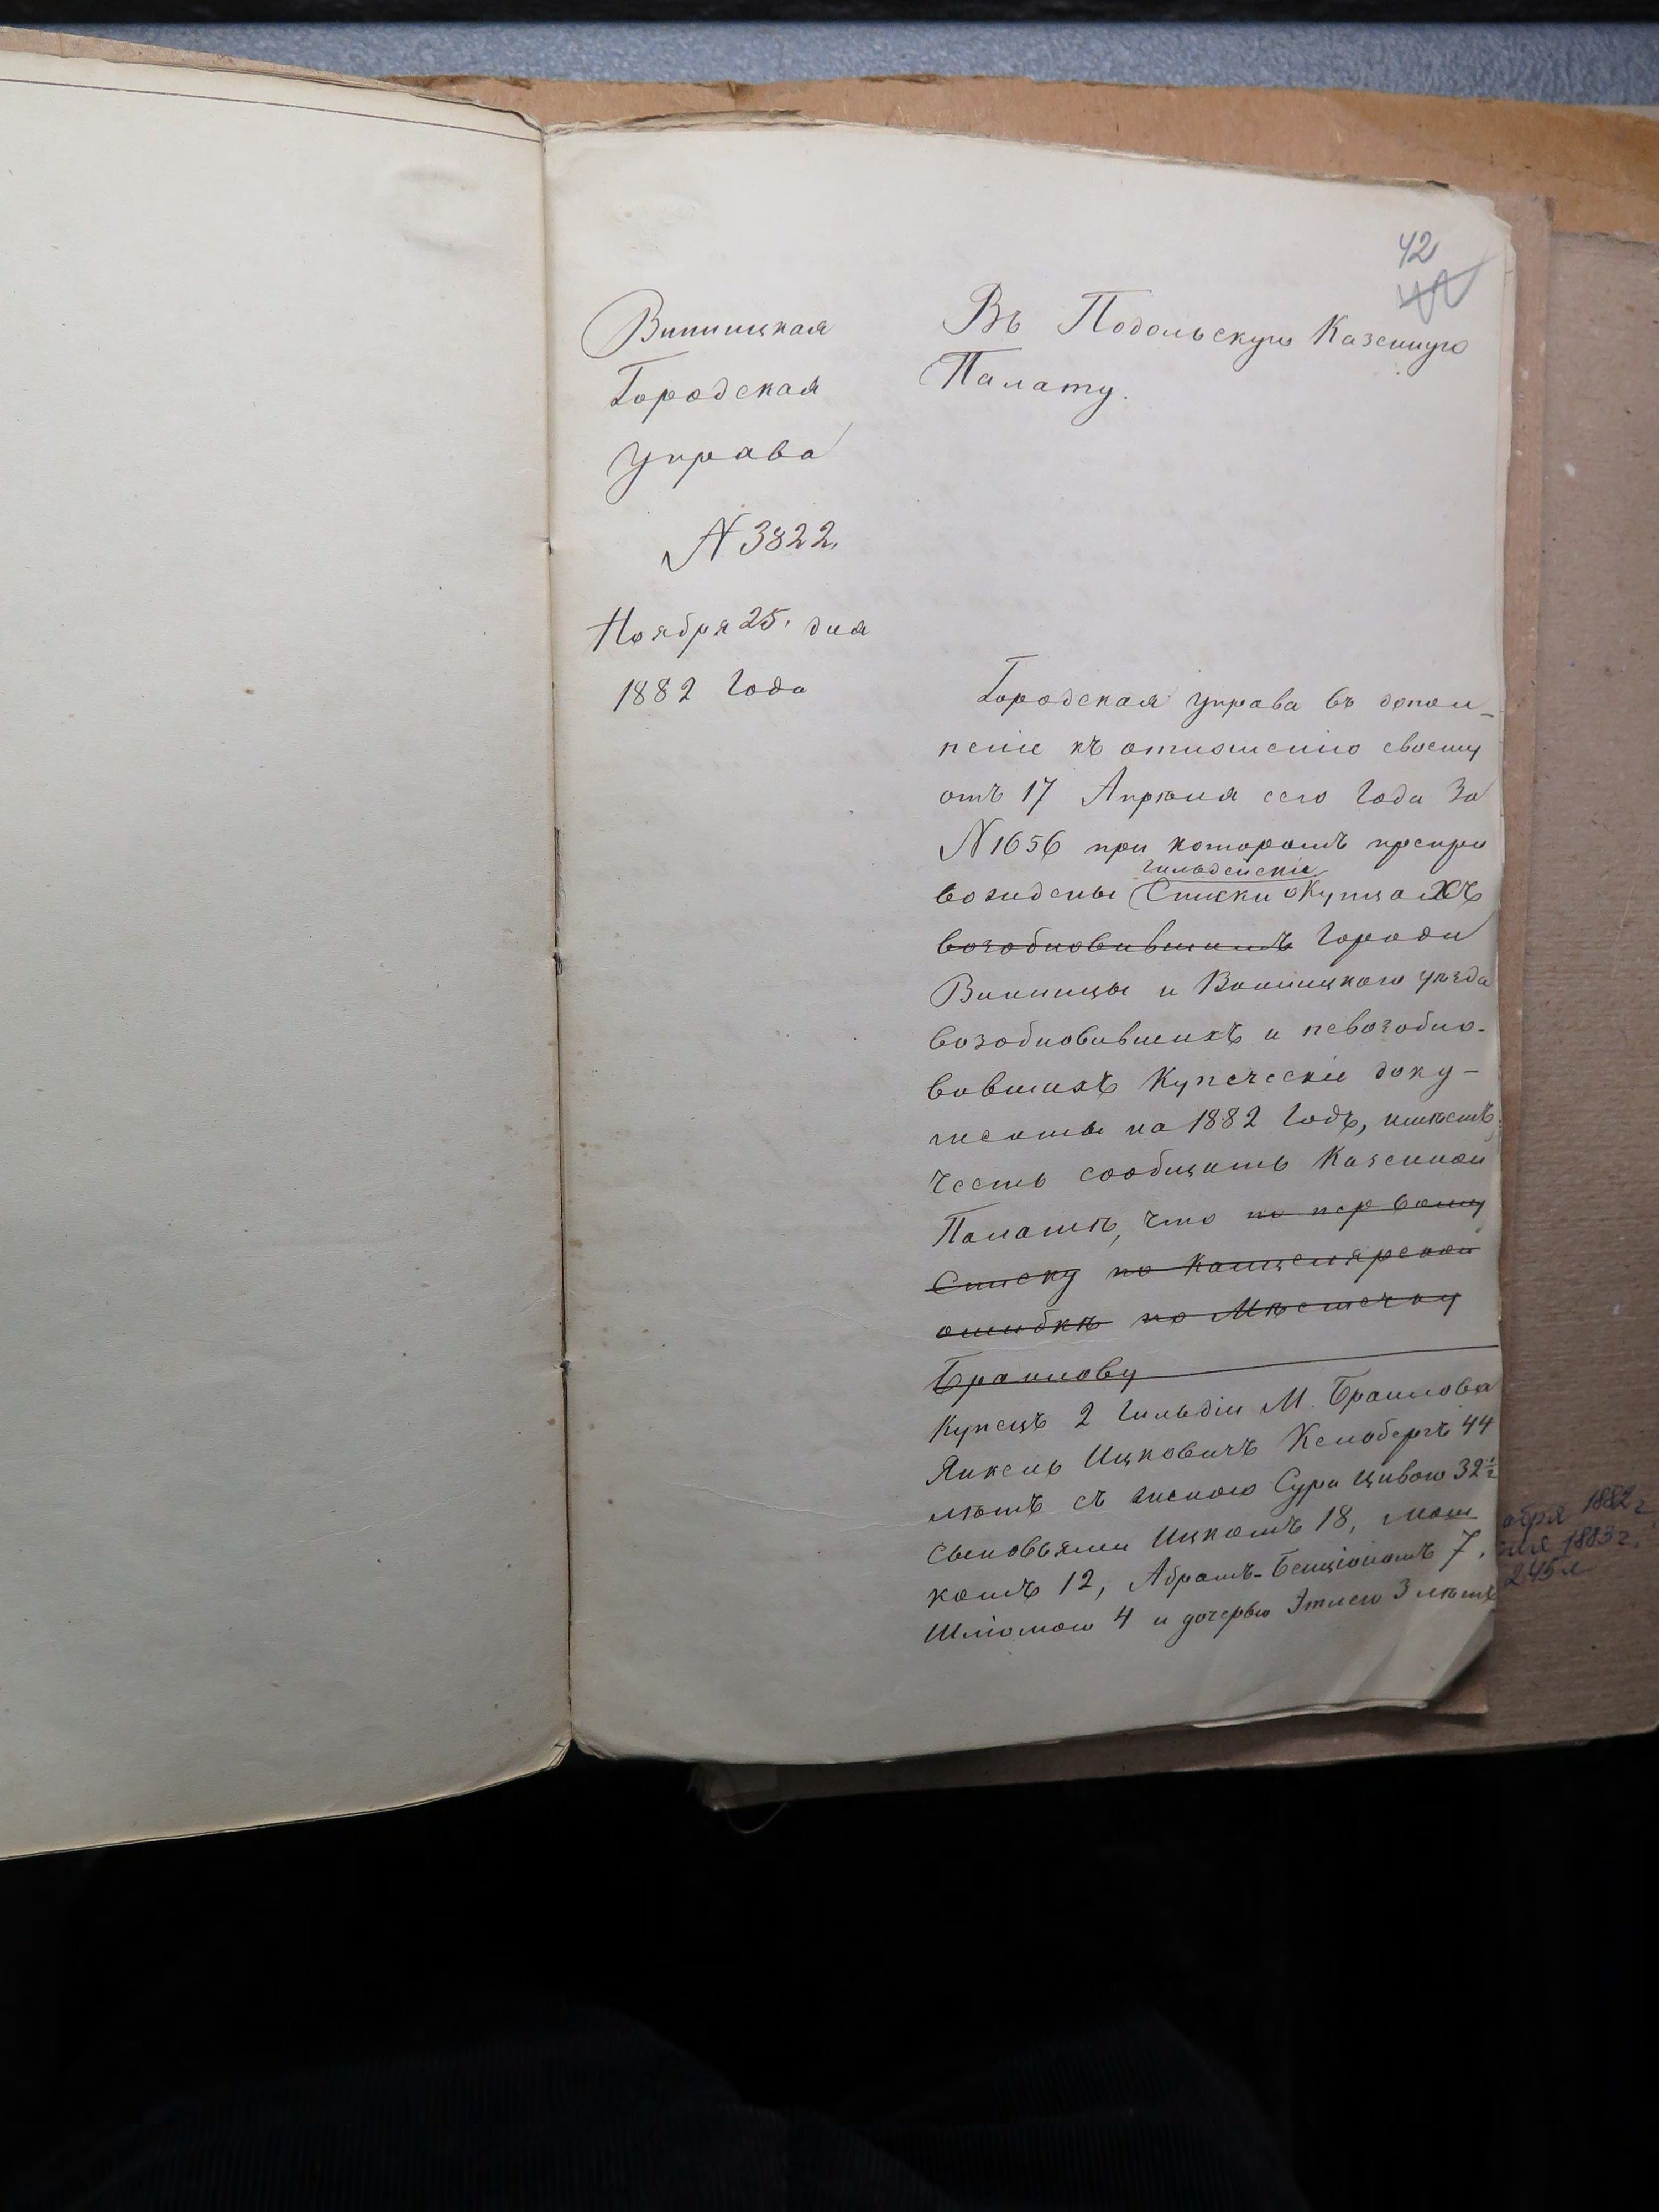 42
Винницкая
Городская
Управа
N 3822.
Ноября 25. дня
1882 года
Въ Подольскую Казенную
Палату.
Городская Управа въ допол-
неніе къ отношенію своему
отъ 17 Апрѣля сего года за
N 1656 при которомъ препро
вождены гильдейскіе Списки о Купцахъ
возобновившимъ города
Винницы и Винницкого уѣзда
возобновившихъ и невозобно-
вившихъ Купеческіе доку-
менты на 1882 годъ, имѣетъ
честь сообщить Казенной
Палатѣ, что по первому
Списку по канцелярской
ошибкѣ по Мѣстечку
Браилову
Купецъ 2 гильдіи М. Браилова
Янкель Ицковичъ Кельбергъ 44
лѣтъ съ женою Сура Цивою 32 1/2
сыновьями Ицкомъ 18, Мош
комъ 12, Абрамъ-Бенціономъ 7,
Шліомою 4 и дочерью Этлею 3 лѣтъ
ября 1882 г.
1883 г.
245 л